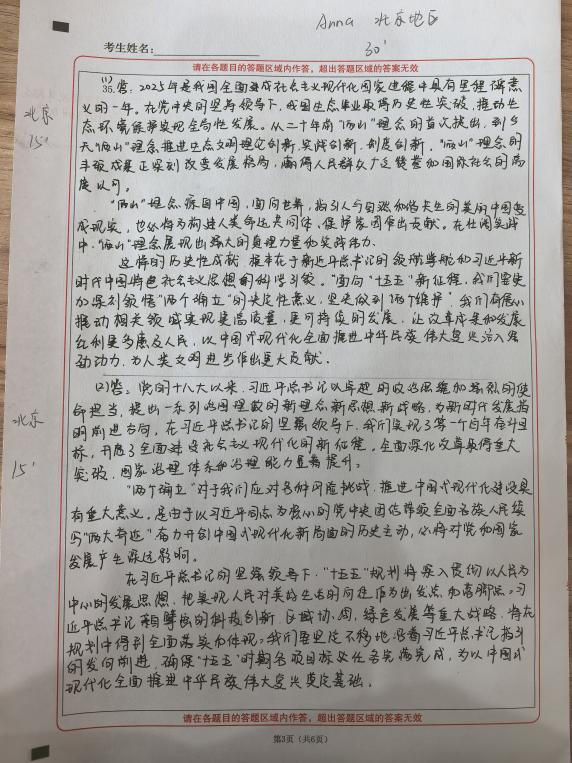 Anna 北京地区
考生姓名：
30'
请在各题目的答题区域内作答，超出答题区域的答案无效
(1)
35.答：2025年是我国全面建成社会主义现代化国家进程中具有里程碑意
义的一年。在党中央的坚强领导下，我国生态事业取得历史性突破，推动生
态环境保护实现全局性发展。从二十年前"两山"理念的首次提出，到今
天"两山"理念推进生态文明理论创新，实践创新，制度创新。"两山"理念的
丰硕成果正深刻改变发展格局，赢得人民群众广泛赞誉和国际社会的高
度认可。
北京
15'
"两山"理念源自中国，面向世界，指引人与自然和谐共生的美丽中国变
成现实，也必将为构建人类命运共同体，保护家园作出贡献。在壮阔实践
中，"两山"理念展现出强大的真理力量和实践伟力。
这样的历史性成就，根本在于新近平总书记的领航掌舵和习近平新
时代中国特色社会主义思想的科学引领。"面向"十五五"新征程，我们要更
加深刻领悟"两个确立"的决定性意义，坚决做到"两个维护"，我们有信心
推动相关领域实现更高质量，更可持续的发展，让改革成果和发展
红利更多惠及人民，以中国式现代化全面推进中华民族伟大复兴注入强
劲动力，为人类文明进步作出更大贡献。
(2)答：党的十八大以来，习近平总书记以卓越的政治思维和强烈的使
命担当，提出一系列治国理政的新理念新思想新战略，为新时代发展指
明前进方向，在习近平总书记的坚强领导下，我们实现了第一个百年奋斗目
标，开启了全面建设社会主义现代化的新征程，全面深化改革取得重大
突破，国家治理体系和治理能力显著提升。
北京
15'
"两个确立"对于我们应对各种风险挑战，推进中国式现代化建设具
有重大意义。是由于以习近平同志为核心的党中央团结带领全国各族人民续
写"两大奇迹"，奋力开创中国式现代化新局面的历史主动，必将对党和国家
发展产生深远影响。
在习近平总书记的坚强领导下，"十五五"规划将深入贯彻以人民为
中心的发展思想，把实现人民对美好生活的向往作为出发点和落脚点。习
近平总书记擘画的科技创新，区域协调，绿色发展等重大战略，将在
规划中得到全面落实和体现。我们要坚定不移地沿着习近平总书记指引
的方向前进，确保"十五五"时期各项目标任务完满完成，为以中国式
现代化全面推进中华民族伟大复兴奠定基础。
请在各题目的答题区域内作答，超出答题区域的答案无效
第3页（共6页）